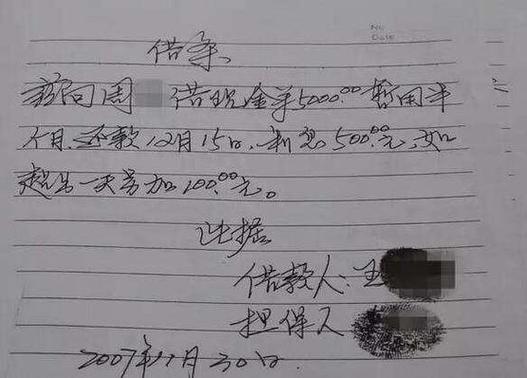 No
Date
借条
兹向周 借现金¥5000.00 暂用半
个月，还款12月15日，利息500.00元，如
超出一天另加100.00元。
此据
借款人：王
担保人
2007年11月30日.